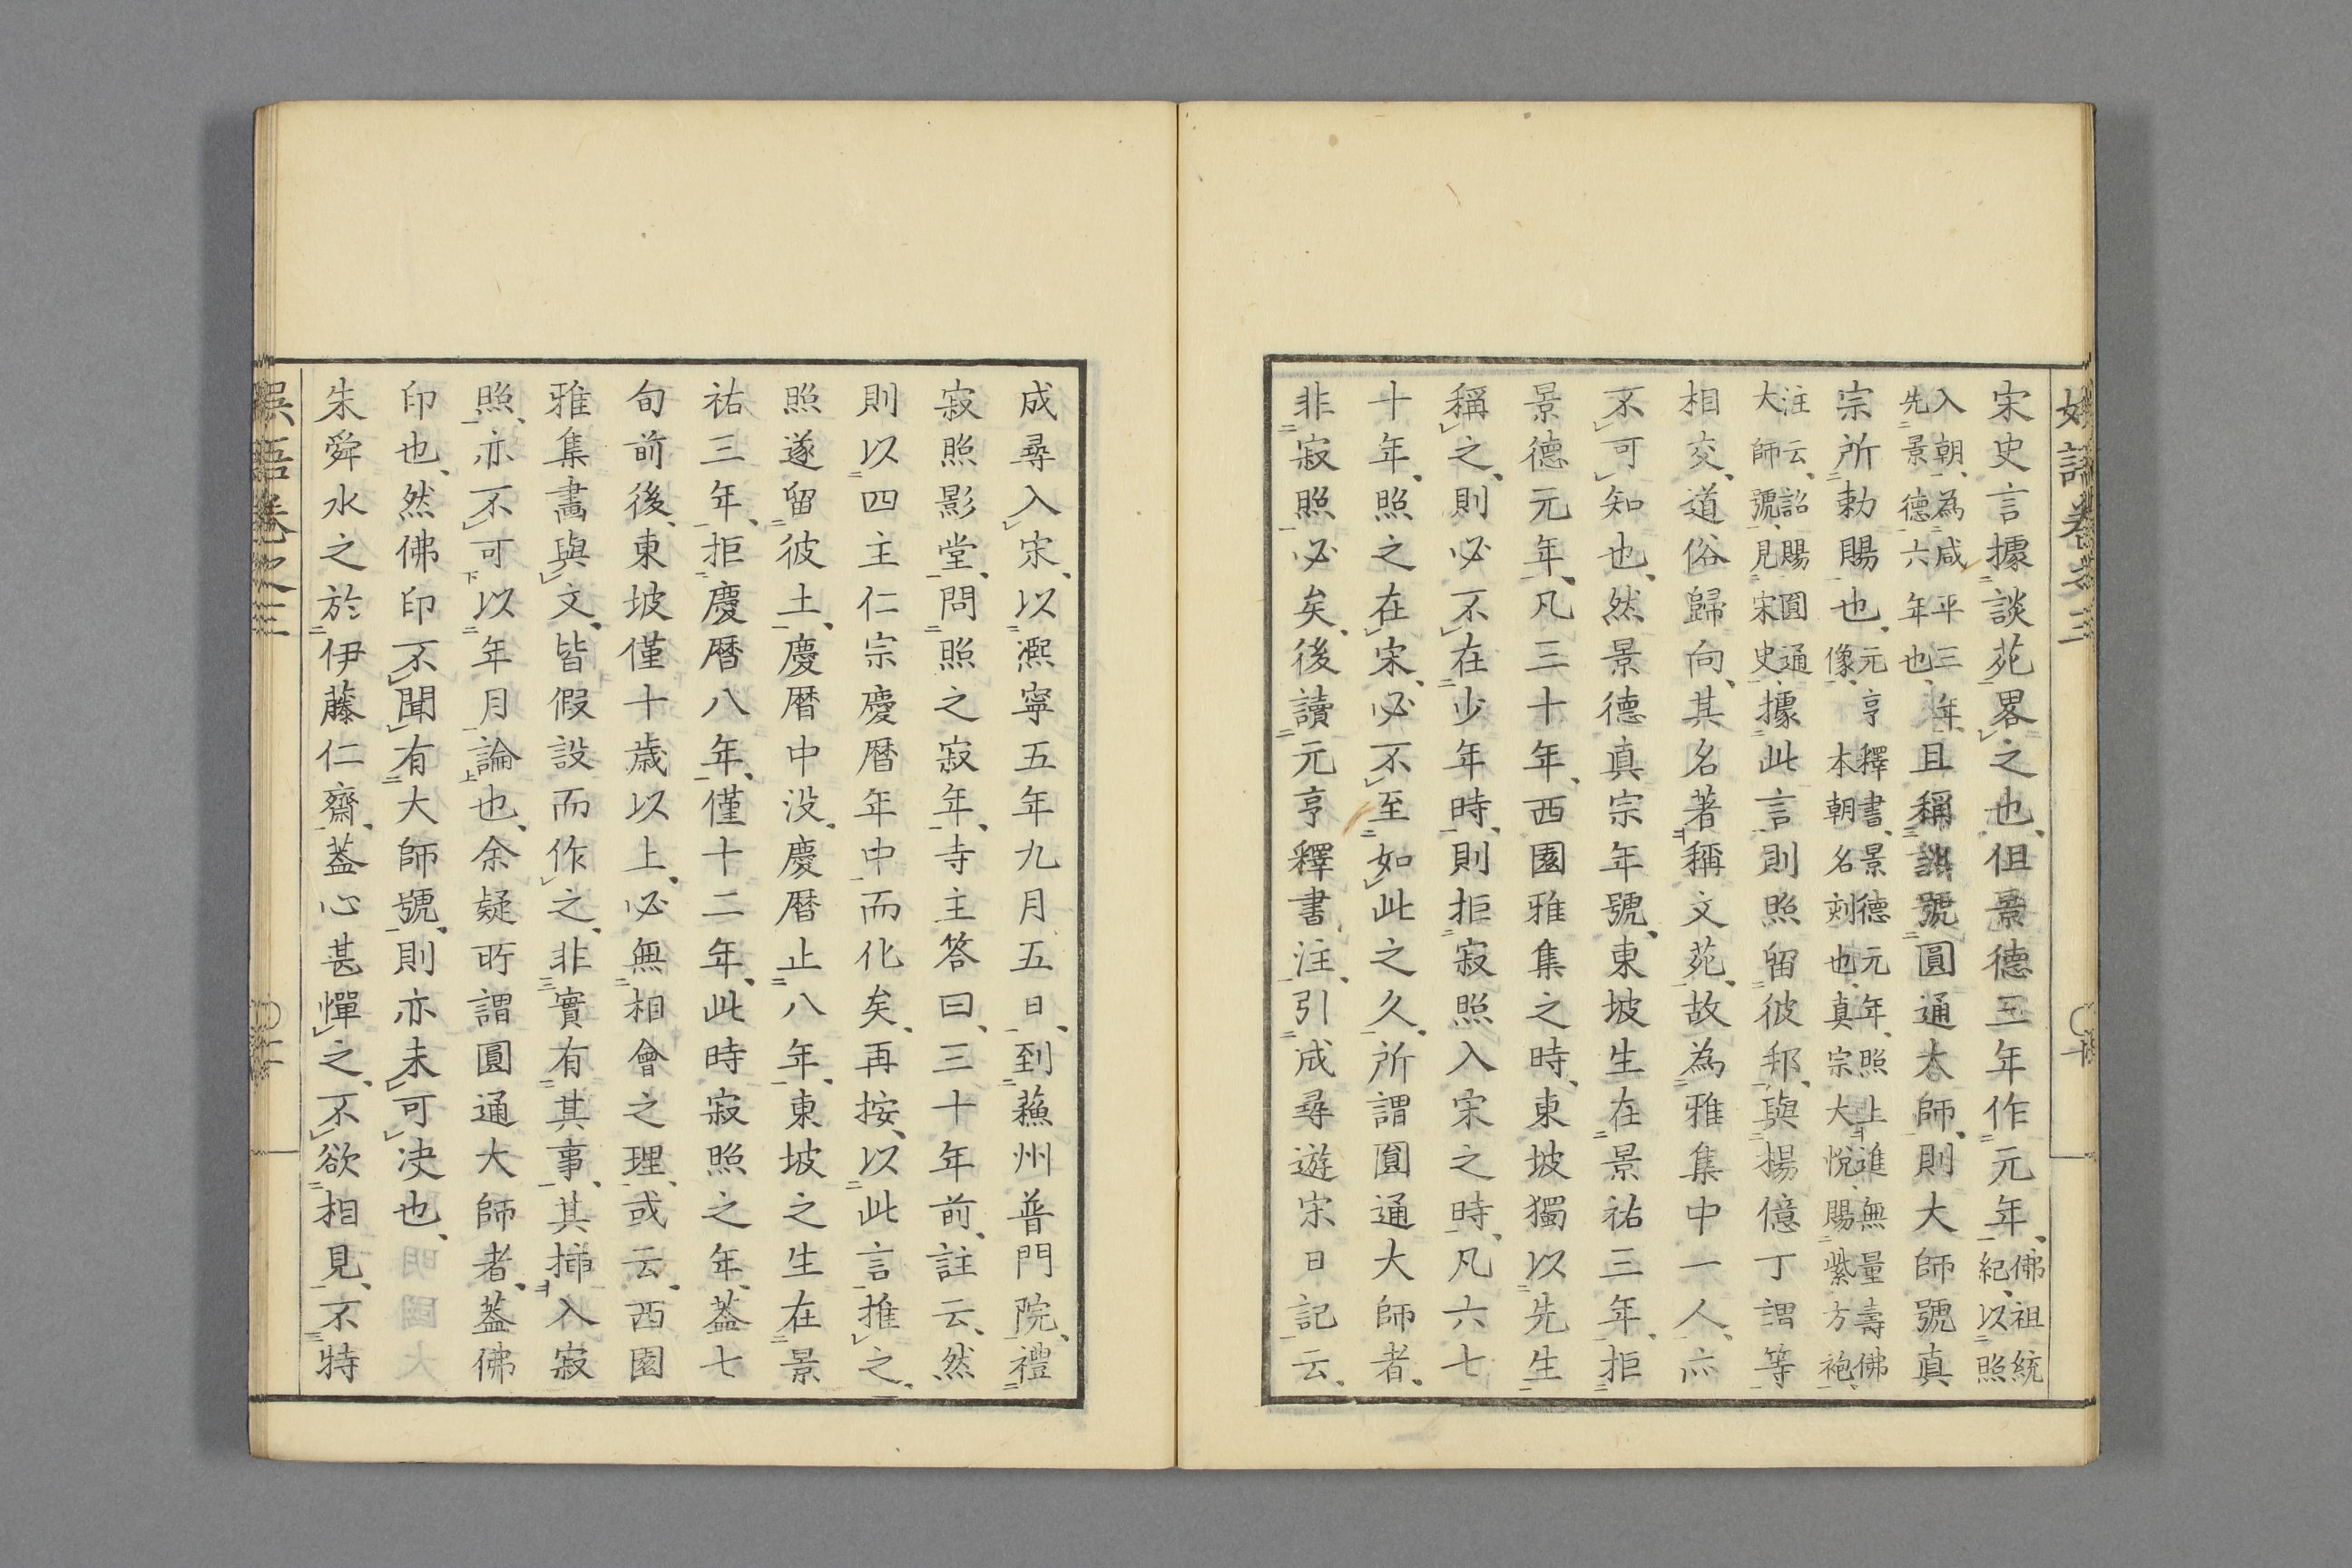 宋史言據談苑畧之也但景德三年作元年佛祖統紀以照
入朝為咸平三年先景德六年也且稱詔號圓通大師則大師號真
宗所勅賜也元亨釋書景德元年照上進無量壽佛像本朝名刻也真宗大悅賜紫方袍
注云詔賜圓通大師號見宋史據此言則照留彼邦與揚億丁謂等
相交道俗歸向其名著稱文苑故為雅集中一人亦
不可知也然景德真宗年號東坡生在景祐三年拒
景德元年凡三十年西園雅集之時東坡獨以先生
稱之則必不在少年時則拒寂照入宋之時凡六七
十年照之在宋必不至如此之久所謂圓通大師者
非寂照必矣後讀元亨釋書注引成尋遊宋日記云
成尋入宋以熈寧五年九月五日到蘓州普門院禮
寂照影堂問照之寂年寺主答曰三十年前註云然
則以四主仁宗慶暦年中而化矣再按以此言推之
照遂留彼土慶暦中没慶暦止八年東坡之生在景
祐三年拒慶暦八年僅十二年此時寂照之年葢七
旬前後東坡僅十歳以上必無相會之理或云西園
雅集畵與文皆假設而作之非實有其事其挿入寂
照亦不可以年月論也余疑所謂圓通大師者葢佛
印也然佛印不聞有大師號則亦未可决也
朱舜水之於伊藤仁齋葢心甚憚之不欲相見不特